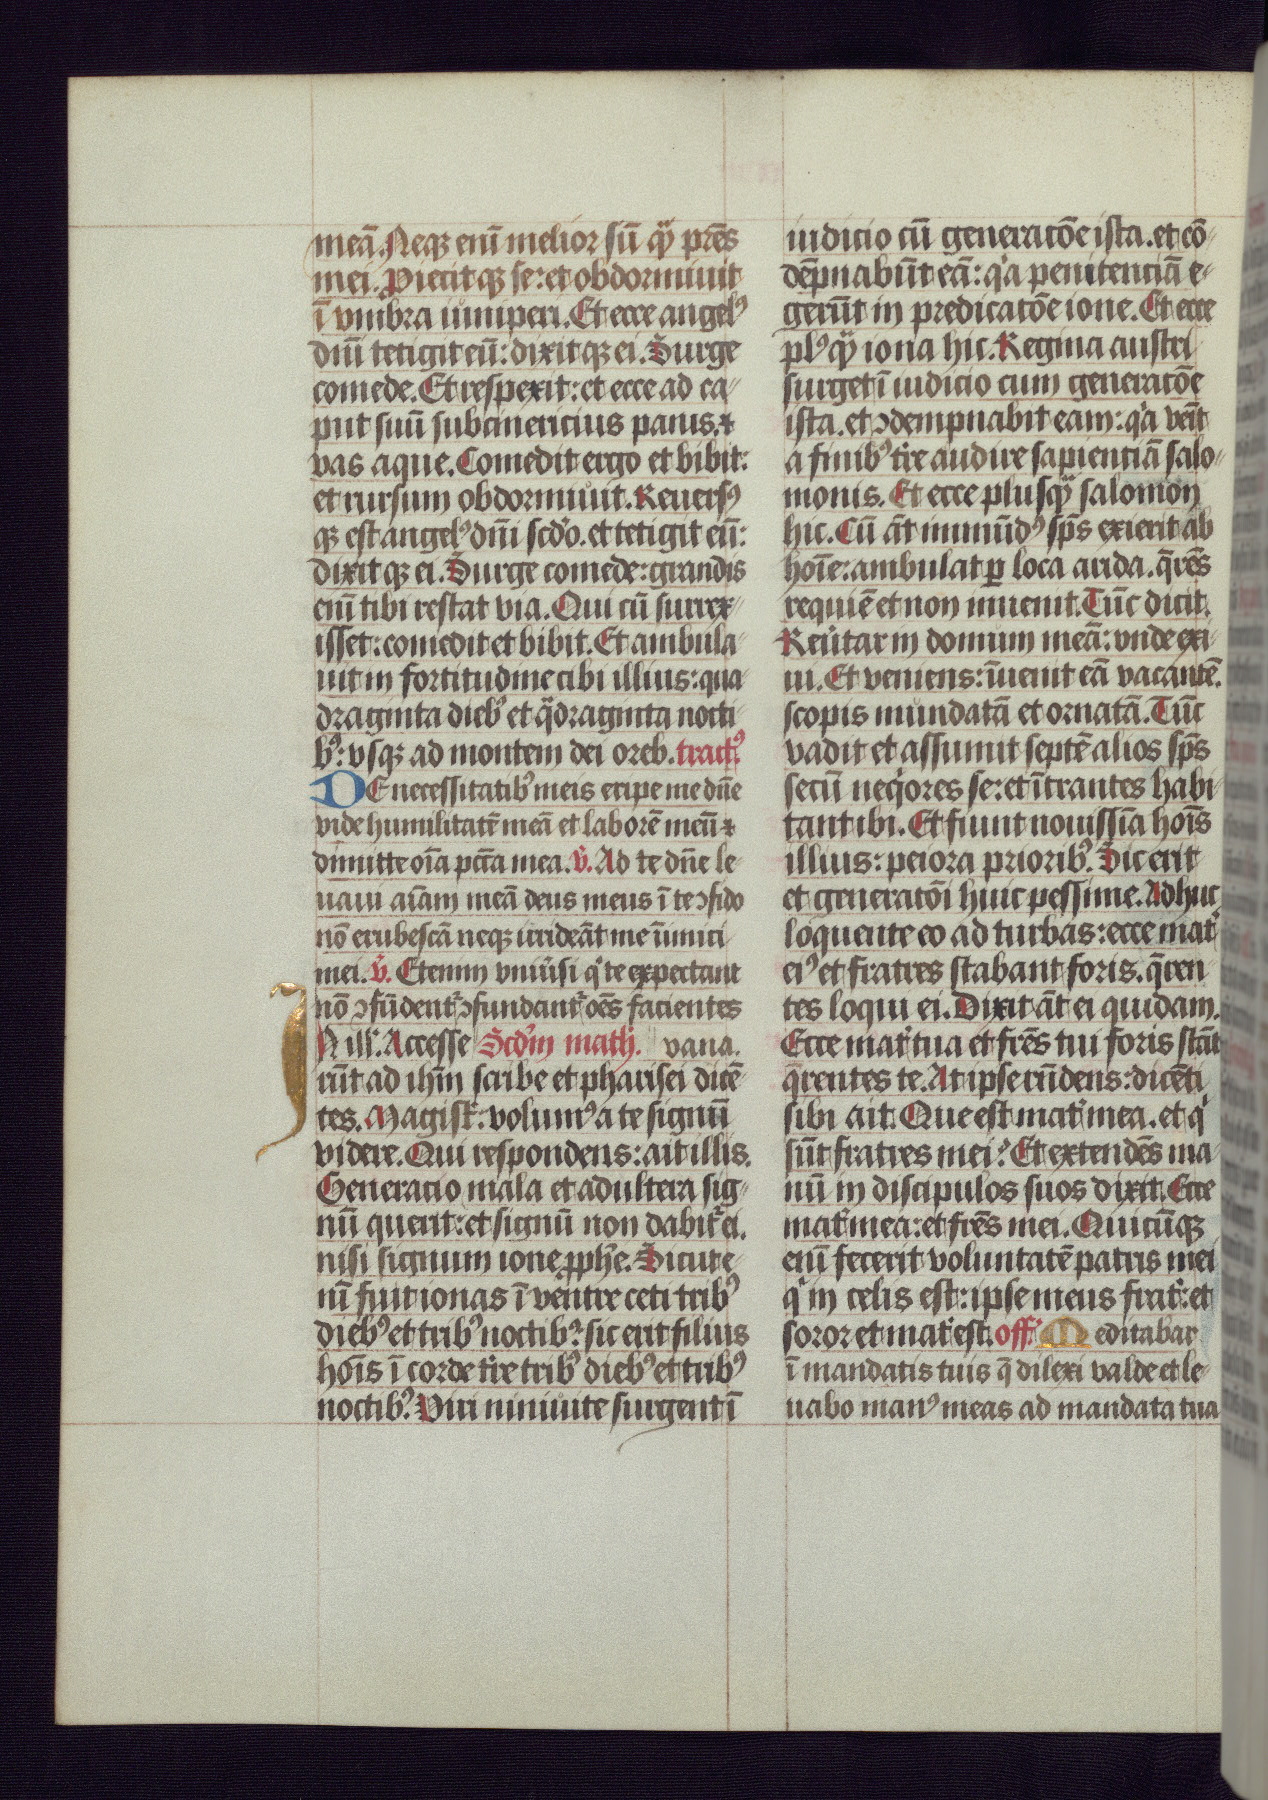 meā. Neqꝫ enī melior sū qᷓ pr̄es
mei. Proiecitqꝫ se: et obdormiuit
ī vmbra iuniperi. Et ecce angelꝰ
dn̄i tetigit eū: dixitqꝫ ei. Surge
comede. Et respexit: et ecce ad ca-
put suū subcinericius panis. ⁊
vas aque. Comedit ergo et bibit:
et rursum obdormiuit. Reuersꝰ
qꝫ est angelꝰ dn̄i scd̓o. et tetigit eū:
dixitqꝫ ei. Surge comede: grandis
enī tibi restat via. Qui cū surrex-
isset: comedit et bibit. Et ambula-
uit in fortitudine cibi illius: qua-
draginta diebꝰ et qᷓdraginta nocti-
bꝰ: vsqꝫ ad montem dei oreb. tractꝰ
DE necessitatibꝰ meis eripe me dn̄e
vide humilitatē meā et laborē meū ⁊
dimitte oīa pctā mea. v̓. Ad te dn̄e le-
uaui aīam meā deus meus ī te ꝯfido
nō erubescā neqꝫ irrideāt me īimici
mei. v̓. Etenim vniūsi qͥ te expectant
nō ꝯfūdent᷑ ꝯfundant᷑ oēs facientes
IN ill᷑. Accesse Scd̓m math̓. vana.
rūt ad ihm̄ scribe et pharisei dicē-
tes. Magist᷑: volumꝰ a te signū
videre. Qui respondens: ait illis.
Generacio mala et adultera sig-
nū querit: et signū non dabit᷑ ei.
nisi signum ione ꝓphe. Sicut e-
nī fuit ionas ī ventre ceti tribꝰ
diebꝰ et tribꝰ noctibꝰ: sic erit filius
hoīs ī corde tr̄e tribꝰ diebꝰ et tribꝰ
noctibꝰ. Viri niniuite surgent ī
iudicio cū generatōe ista. et cō-
dēpnabūt eā: qᷓa penitenciā e-
gerūt in predicatōe ione. Et ecce
plꝰ qᷓ iona hic. Regina austri
surget ī iudicio cum generatōe
ista. et ꝯdempnabit eam: qᷓa venīt
a finibꝰ tr̄e audire sapienciā salo-
monis. Et ecce plusqᷓ salomon
hic. Cū āt immūdꝰ sp̄s exierit ab
hoīe: ambulat ꝑ loca arida. q̄rēs
requiē et non inuenit. Tūc dicit.
Reūtar in domum meā: vnde exi-
ui. Et veniens: īuenit eā vacantē.
scopis mundatā et ornatā. Tūc
vadit et assumit septē alios sp̄s
secū neqͥores se: et ītrantes habi-
tant ibi. Et fiunt nouissīa hoīs
illius: peiora prioribꝰ. Sic erit
et generatōi huic pessime. Adhuc
loquente eo ad turbas: ecce mat᷑
eiꝰ et fratres stabant foris. q̄ren-
tes loqui ei. Dixit āt ei quidam.
Ecce mat᷑ tua et fr̄es tui foris stāt
q̄rentes te. At ipse rn̄dens: dicēti
sibi ait. Que est mat᷑ mea. et qͥ
sūt fratres mei? Et extendēs ma-
nū in discipulos suos dixit. Ecce
mat᷑ mea: et fr̄es mei. Quicūqꝫ
enī fecerit voluntatē patris mei
qͥ in celis est: ipse meus frat᷑: et
soror et mat᷑ est. off᷑. Meditabar
ī mandatis tuis q̄ dilexi valde et le-
uabo manꝰ meas ad mandata tua